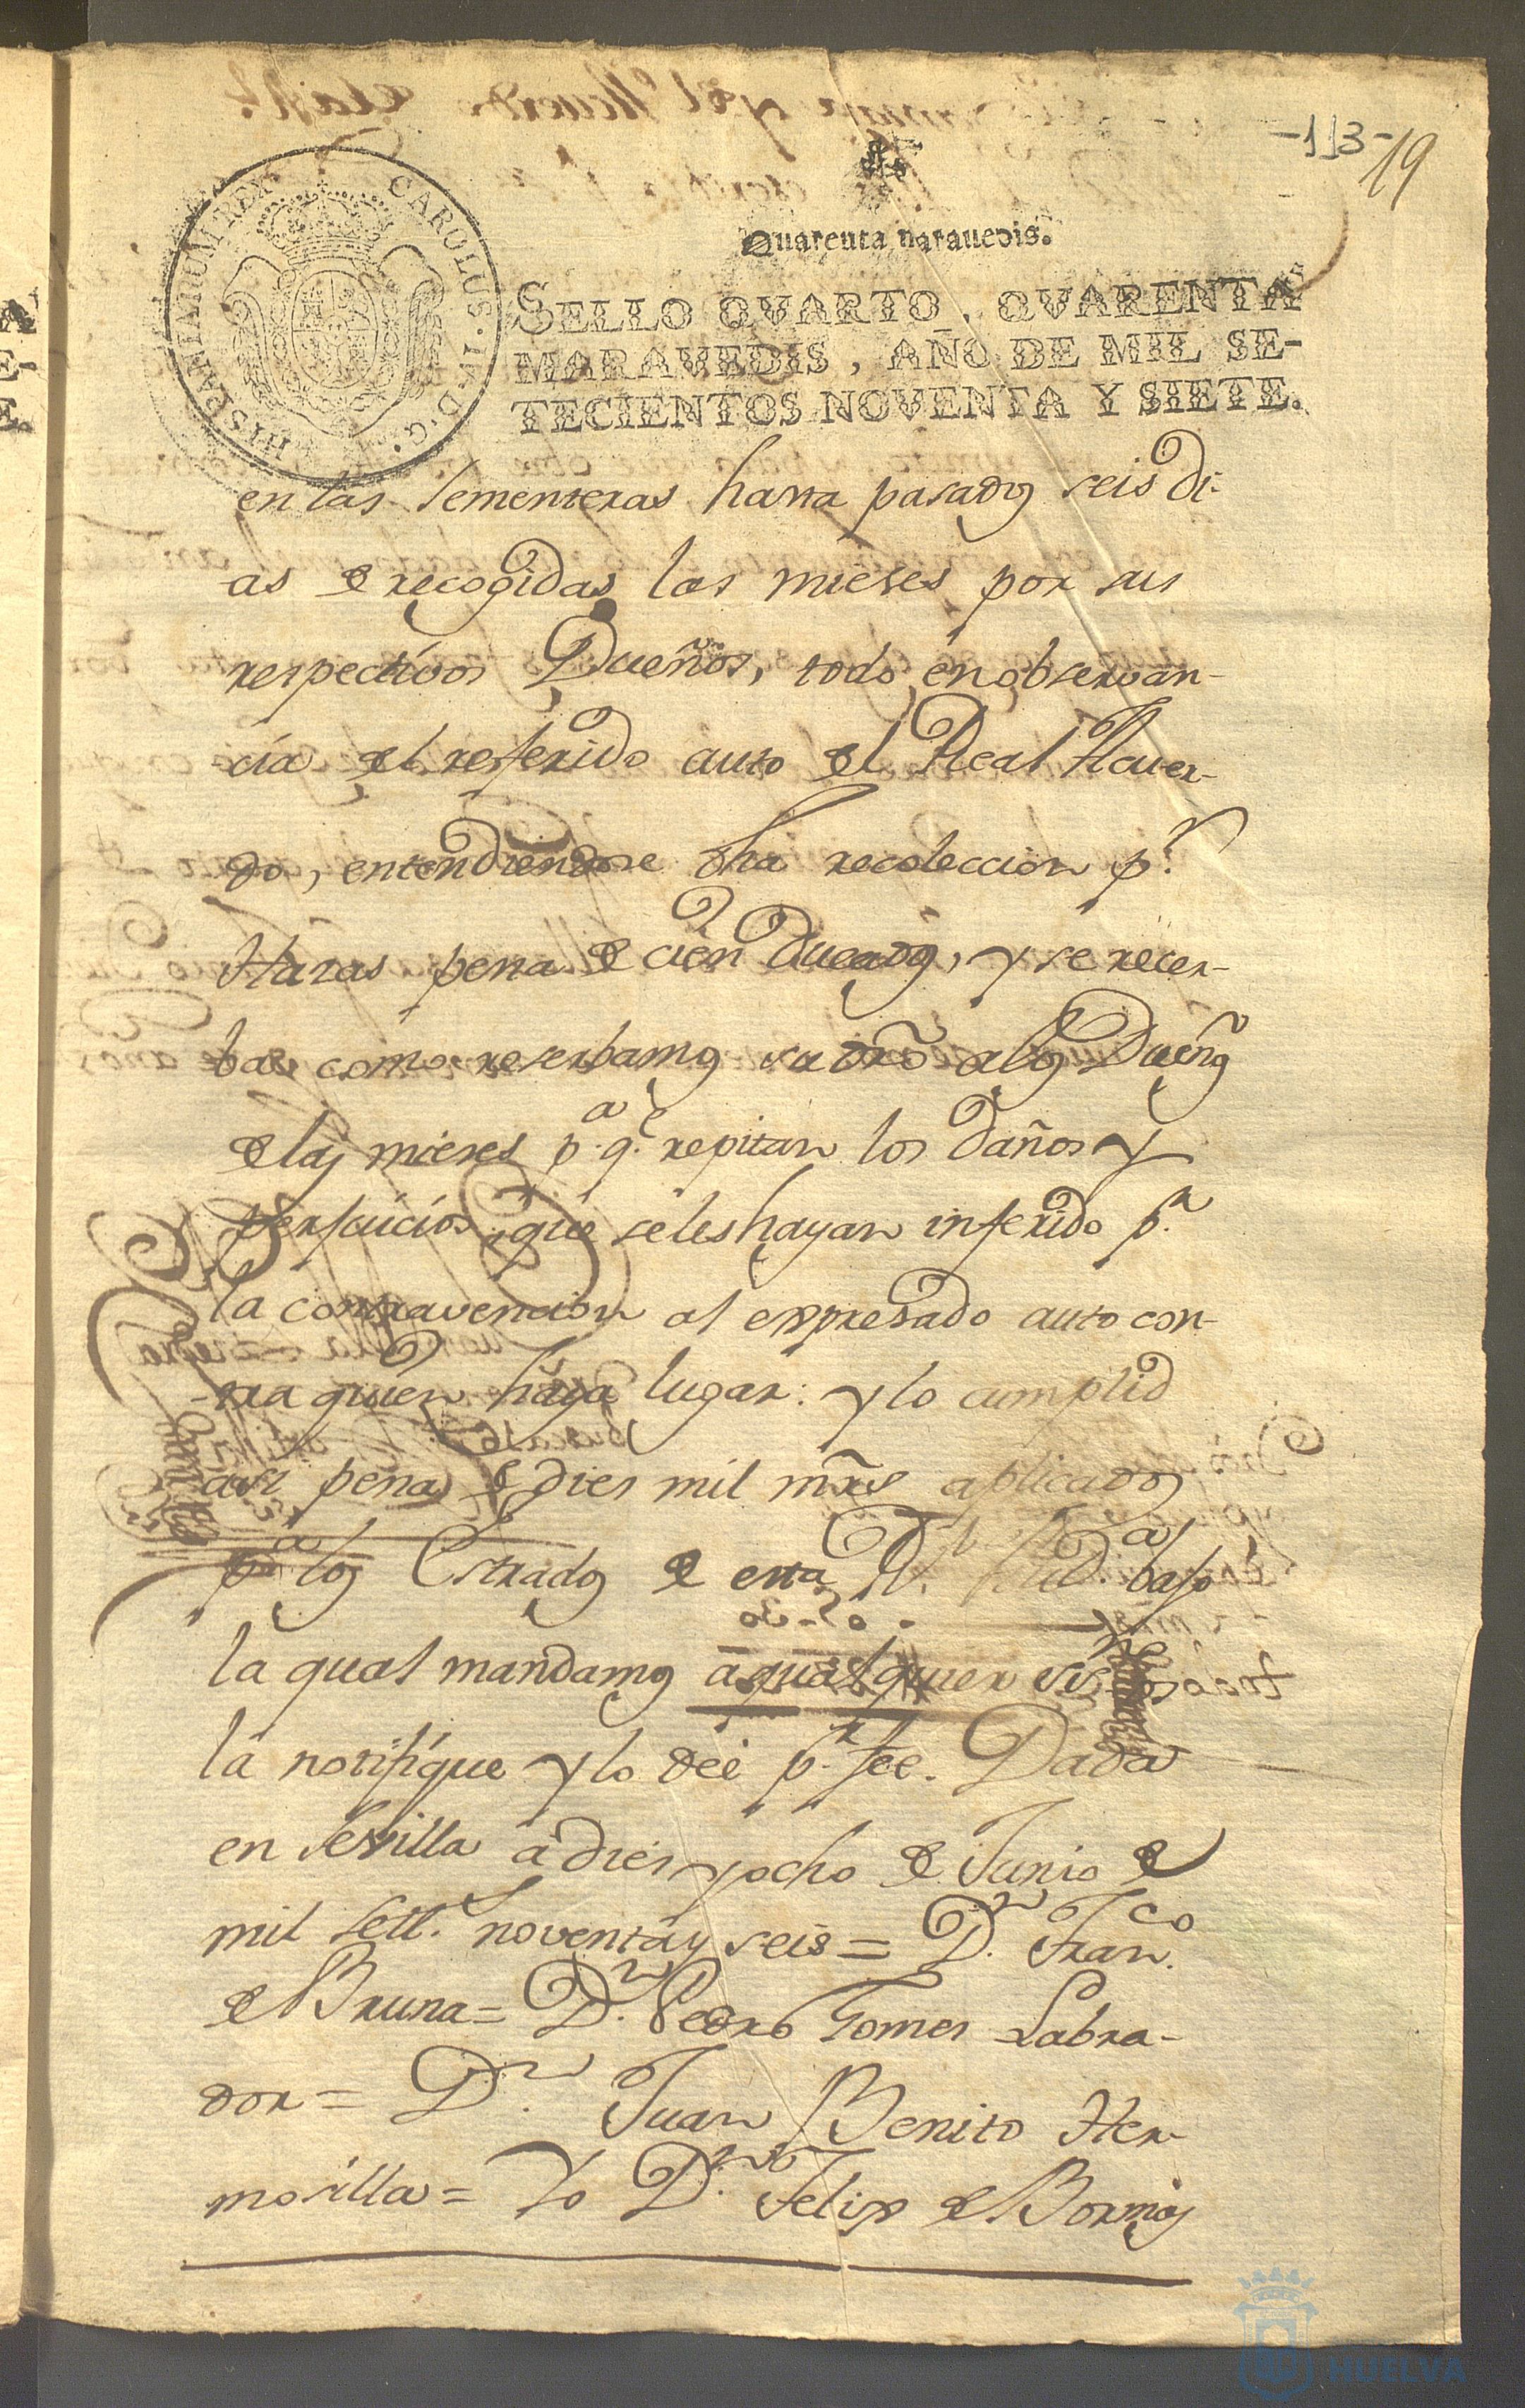 -113-
19
Quarenta maravedis.
HISPANIARUM REX CAROLUS. IV. D. G.
SELLO QVARTO, QVARENTA
MARAVEDIS, AÑO DE MIL SE-
TECIENTOS NOVENTA Y SIETE.
en las sementeras hasta pasados seis di-
as de recogidas las mieses por sus
respectivos Dueños, todo en observan-
cia del referido auto del Real Acuer-
do, entendiendose dha recoleccion pr.
Hazas pena de cien Ducados, y se recer-
ba como reserbamos su dro a los Dueños
de las mieses pa. qe. repitan los daños y
perjuicios, que se les hayan inferido pr.
la contravencion al expresado auto con-
tra quien haya lugar: y lo cumplid
asi pena de dies mil mrs aplicados
pa los Estrados de esta Rl. Aud.a bajo
la qual mandamos a qualquier esno
la notifique y lo deé pr. fee. Dada
en Sevilla a dies y ocho de Junio de
mil sett.s noventa y seis = Dn. Franco.
de Bruna = Dn. Pedro Gomes Labra-
dor = Dn. Juan Benito Her-
mosilla = Yo Dn. Felix de Bormas
HUELVA